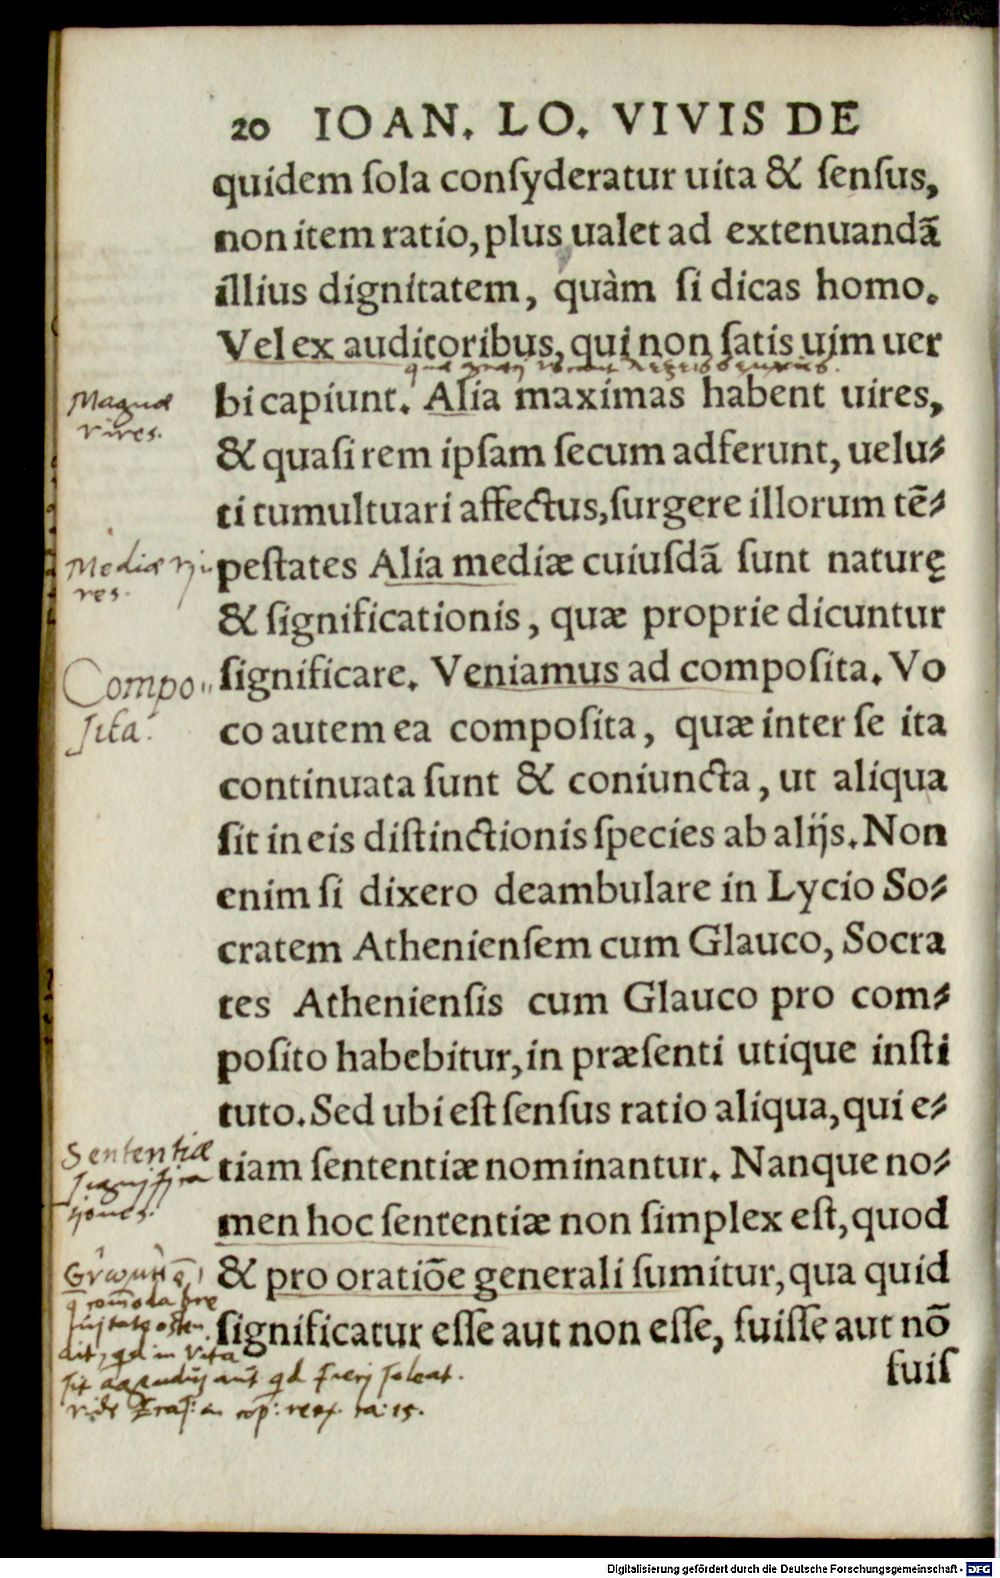 20 IOAN. LO. VIVIS DE
quidem ſola conſyderatur uita & ſenſus,
non item ratio, plus ualet ad extenuandã
illius dignitatem, quàm ſi dicas homo.
Vel ex auditoribus, qui non ſatis uim uer
bi capiunt. Alia maximas habent uires,
Magnæ
vires.
& quaſi rem ipſam ſecum adferunt, uelu⸗
ti tumultuari affectus, ſurgere illorum tẽ⸗
peſtates Alia mediæ cuiuſdã ſunt naturę
Mediæ vi-
res.
& ſignificationis, quæ proprie dicuntur
ſignificare. Veniamus ad compoſita. Vo
Compo⸗
ſita.
co autem ea compoſita, quæ inter ſe ita
continuata ſunt & coniuncta, ut aliqua
ſit in eis diſtinctionis ſpecies ab alijs. Non
enim ſi dixero deambulare in Lycio So⸗
cratem Athenienſem cum Glauco, Socra
tes Athenienſis cum Glauco pro com⸗
poſito habebitur, in præſenti utique inſti
tuto. Sed ubi eſt ſenſus ratio aliqua, qui e⸗
tiam ſententiæ nominantur. Nanque no⸗
Sententiæ
ſignifica
tiones.
men hoc ſententiæ non ſimplex eſt, quod
& pro oratiõe generali ſumitur, qua quid
ſignificatur eſſe aut non eſſe, fuiſſe aut nõ
fuiſ
dit, qd in vita
ſit agendũ aut qd fieri ſoleat.
Digitalisierung gefördert durch die Deutsche Forschungsgemeinschaft - DFG